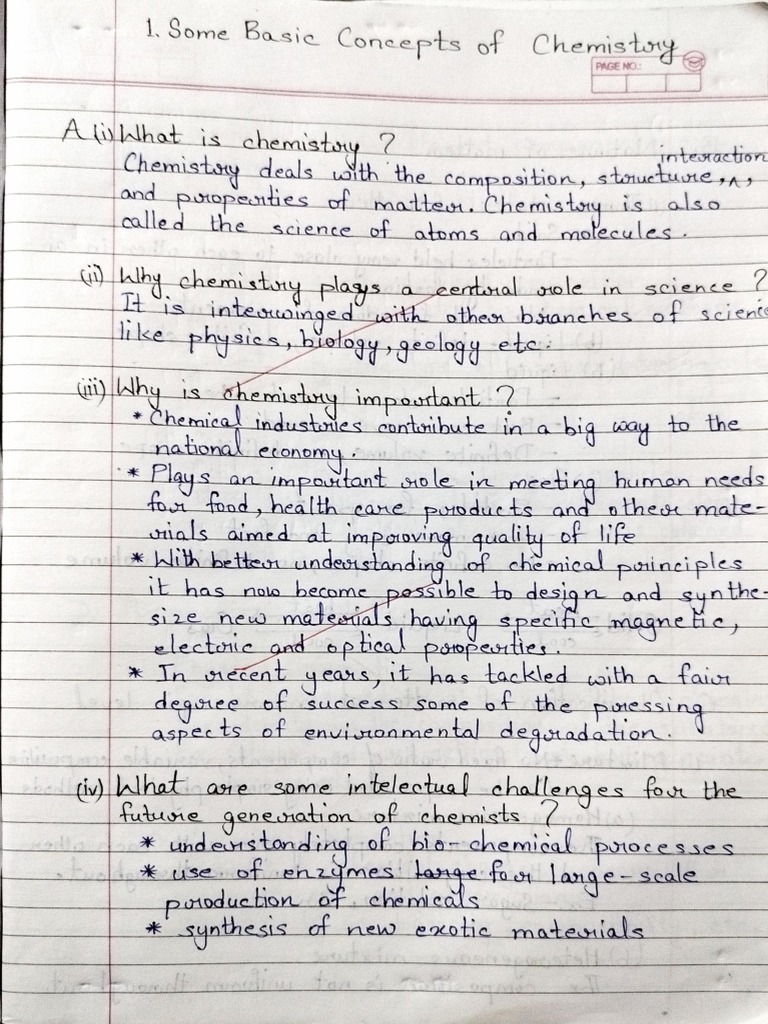 1. Some Basic Concepts of Chemistry
PAGE NO.:
A (i) What is chemistry ?
interaction
Chemistry deals with the composition, structure, ^,
and properties of matter. Chemistry is also
called the science of atoms and molecules.
(ii) Why chemistry plays a central role in science ?
It is interwinged with other branches of science
like physics, biology, geology etc.
(iii) Why is chemistry important ?
* Chemical industries contribute in a big way to the
national economy.
* Plays an important role in meeting human needs
for food, health care products and other mate-
rials aimed at improving quality of life
* With better understanding of chemical principles
it has now become possible to design and synthe-
size new materials having specific magnetic,
electric and optical properties.
* In recent years, it has tackled with a fair
degree of success some of the pressing
aspects of environmental degradation.
(iv) What are some intelectual challenges for the
future generation of chemists ?
* understanding of bio-chemical processes
* use of enzymes large for large-scale
production of chemicals
* synthesis of new exotic materials